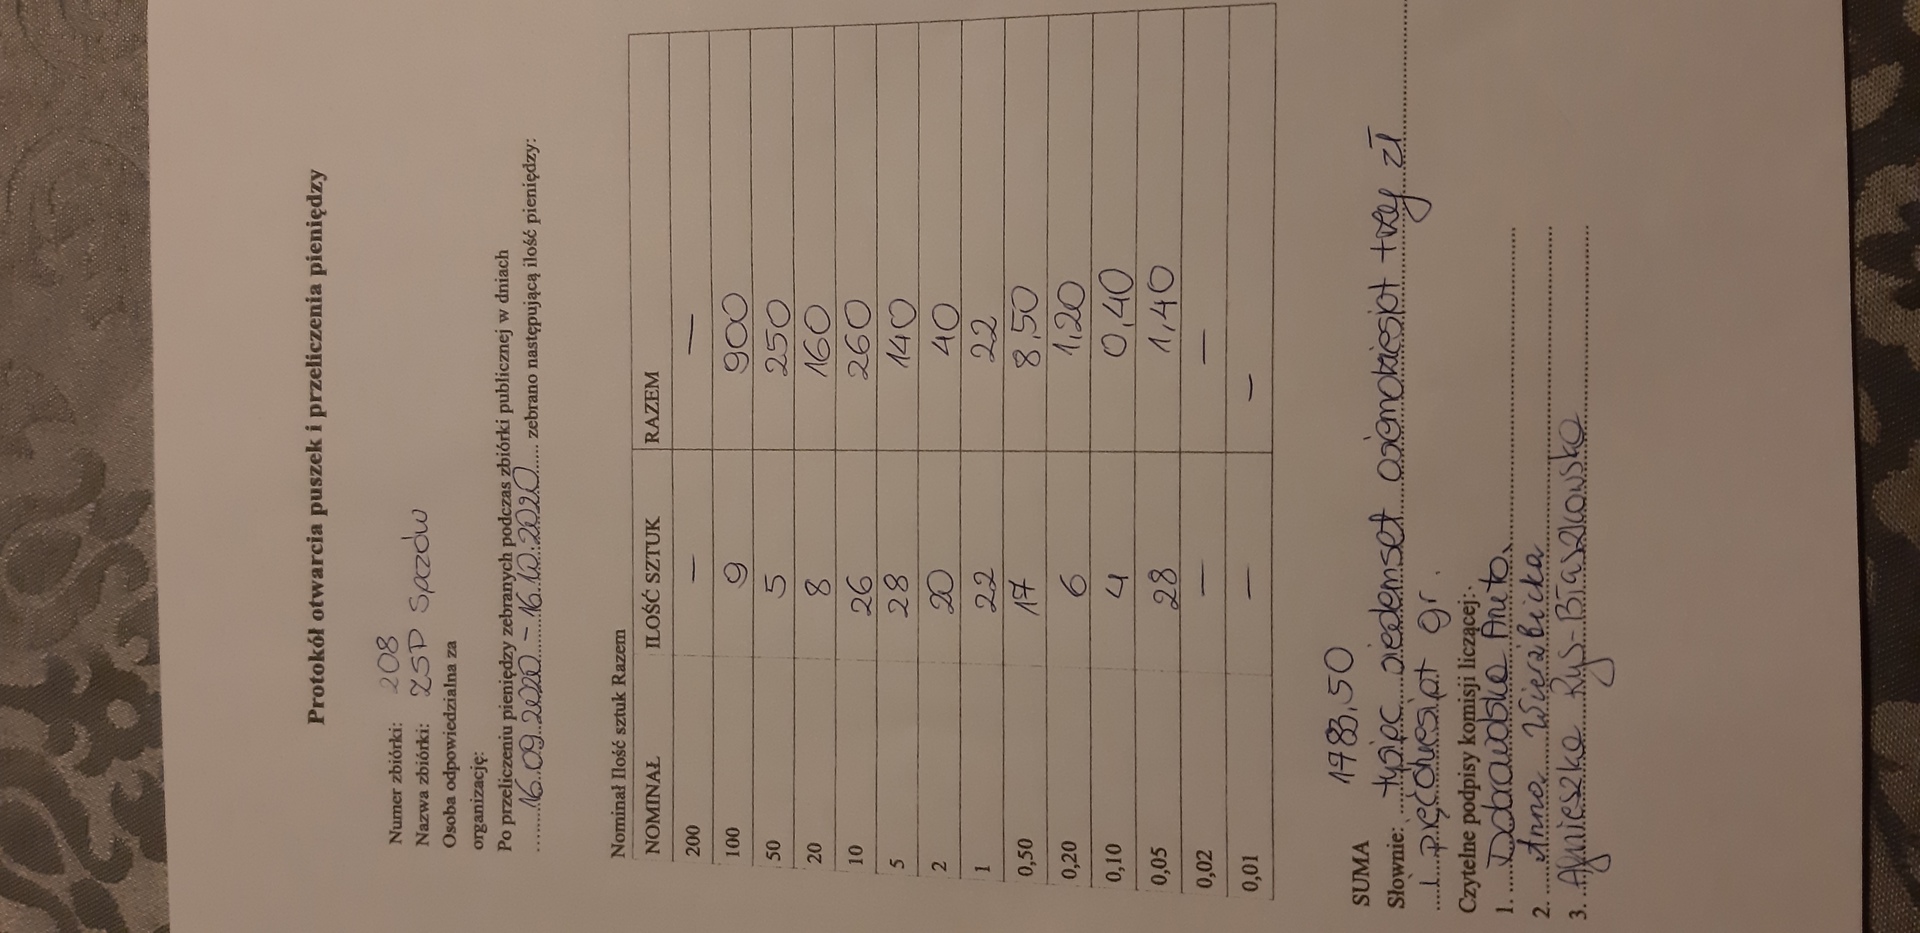 Protokół otwarcia puszek i przeliczenia pieniędzy
Numer zbiórki: 208
Nazwa zbiórki: ZSP Spazów
Osoba odpowiedzialna za
organizację:
Po przeliczeniu pieniędzy zebranych podczas zbiórki publicznej w dniach
16.09.2020 - 16.10.2020 zebrano następującą ilość pieniędzy:
Nominał Ilość sztuk Razem
NOMINAŁ ILOŚĆ SZTUK RAZEM
200 — —
100 9 900
50 5 250
20 8 160
10 26 260
5 28 140
2 20 40
1 22 22
0,50 17 8,50
0,20 6 1,20
0,10 4 0,40
0,05 28 1,40
0,02 — —
0,01 — —
SUMA 1783,50
Słownie: tysiąc siedemset osiemdziesiąt trzy zł
i pięćdziesiąt gr.
Czytelne podpisy komisji liczącej:
1. Dobrawolska Aneta
2. Anna Wierzbicka
3. Agnieszka Ryś-Błaszkowska